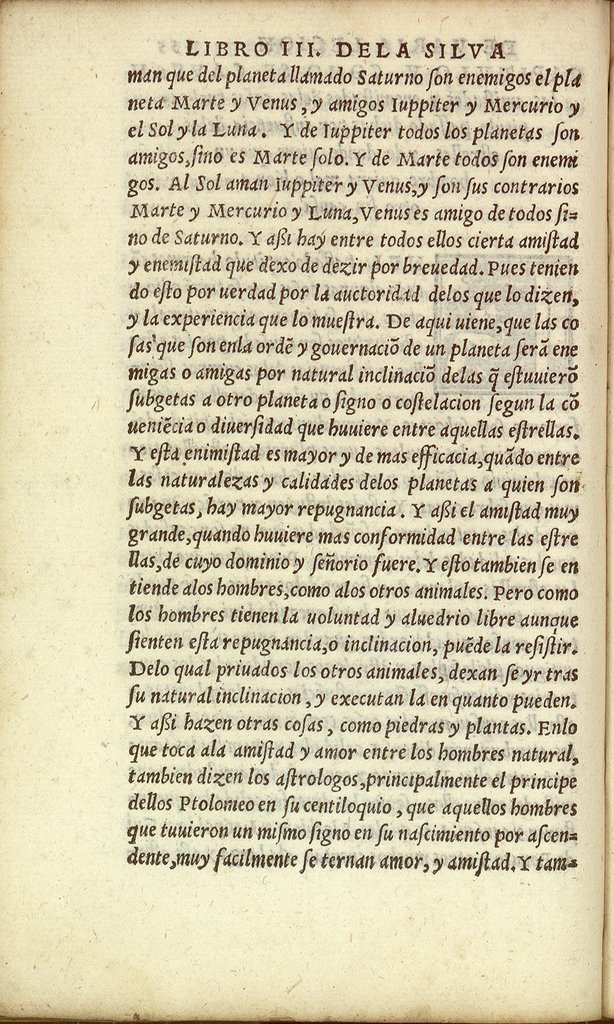 LIBRO III. DE LA SILVA
man que del planeta llamado Saturno ſon enemigos el pla
neta Marte y Venus, y amigos Iuppiter y Mercurio y
el Sol y la Luna. Y de Iuppiter todos los planetas ſon
amigos, ſino es Marte ſolo. Y de Marte todos ſon enemi
gos. Al Sol aman Iuppiter y Venus, y ſon ſus contrarios
Marte y Mercurio y Luna, Venus es amigo de todos ſi=
no de Saturno. Y aßi hay entre todos ellos cierta amiſtad
y enemiſtad que dexo de dezir por breuedad. Pues tenien
do eſto por uerdad por la auctoridad delos que lo dizen,
y la experiencia que lo mueſtra. De aqui uiene, que las co
ſas que ſon enla ordē y gouernaciō de un planeta ſerā ene
migas o amigas por natural inclinaciō delas q̃ eſtuuierō
ſubgetas a otro planeta o ſigno o coſtelacion ſegun la cō
ueniēcia o diuerſidad que huuiere entre aquellas eſtrellas.
Y eſta enimiſtad es mayor y de mas efficacia, quādo entre
las naturalezas y calidades delos planetas a quien ſon
ſubgetas, hay mayor repugnancia. Y aßi el amiſtad muy
grande, quando huuiere mas conformidad entre las eſtre
llas, de cuyo dominio y ſeñorio fuere. Y eſto tambien ſe en
tiende alos hombres, como alos otros animales. Pero como
los hombres tienen la uoluntad y aluedrio libre aunque
ſienten eſta repugnancia, o inclinacion, puēde la reſiſtir.
Delo qual priuados los otros animales, dexan ſe yr tras
ſu natural inclinacion, y executan la en quanto pueden.
Y aßi hazen otras coſas, como piedras y plantas. Enlo
que toca ala amiſtad y amor entre los hombres natural,
tambien dizen los aſtrologos, principalmente el principe
dellos Ptolomeo en ſu centiloquio, que aquellos hombres
que tuuieron un miſmo ſigno en ſu naſcimiento por aſcen=
dente, muy facilmente ſe ternan amor, y amiſtad. Y tam=